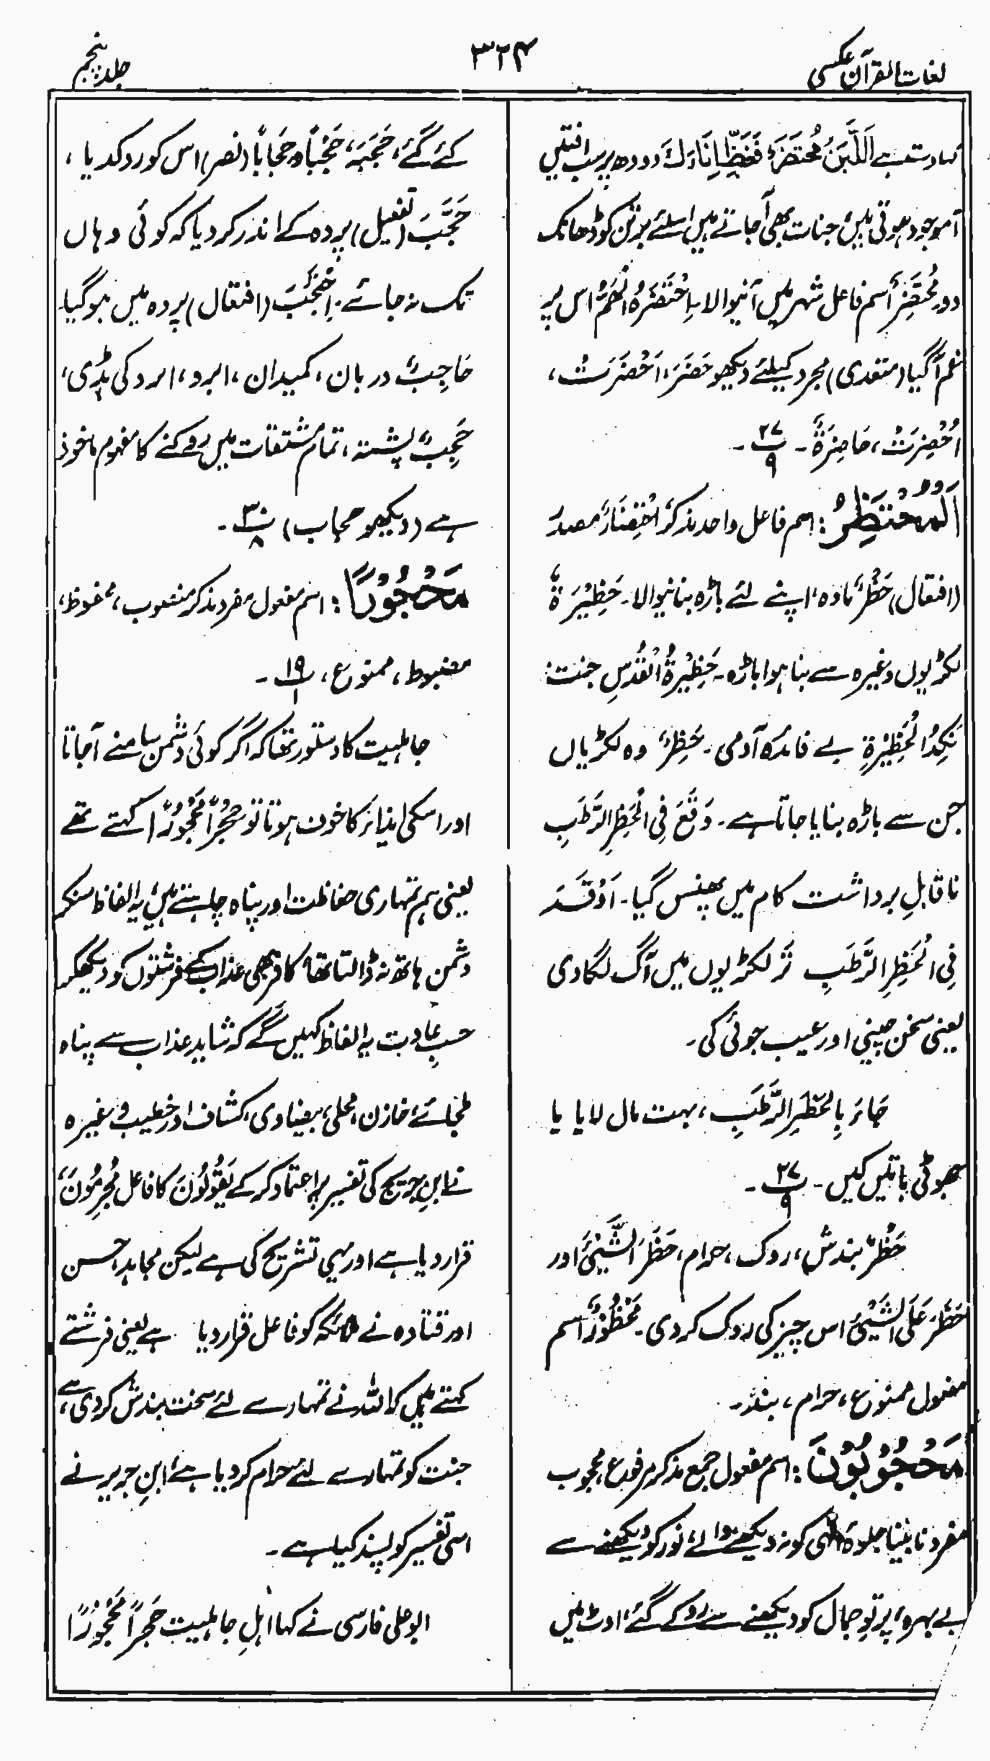 لغات القرآن عکسی
۳۲۴
جلد پنجم
کہاوت ہے اَللَّبَنُ مُحْتَضَرٌ فَغَطِّ اِنَاءَكَ دودھ پر سب آفتیں
آموجود ہوتی ہیں، جنات بھی آجاتے ہیں اسلئے برتن کو ڈھانک
دو۔ مُحْتَضِرٌ اسم فاعل شہر میں آنیوالا۔ اِحْتَضَرَهُ الْهَمُّ اس پر
غم آگیا (متعدی) مجرد کیلئے دیکھو حَضَرَ، اَحْضَرَتْ،
اُحْضِرَتْ، حَاضِرَةً۔ ۲۷/۹ ۔
اَلْمُحْتَظِرُ: اسم فاعل واحد مذکر اِحْتِظَارٌ مصدر
(افتعال) حَظْرٌ مادہ، اپنے لئے باڑہ بنانیوالا۔ حَظِيْرَةٌ
لکڑیوں وغیرہ سے بنا ہوا باڑہ۔ حَظِيْرَةُ الْقُدْسِ جنت
نَكِدُ الْحَظِيْرَةِ بے فائدہ آدمی۔ حَظِرٌ وہ لکڑیاں
جن سے باڑہ بنایا جاتا ہے۔ وَقَعَ فِي الْحَظِرِ الرَّطْبِ
ناقابلِ برداشت کام میں پھنس گیا۔ اَوْقَدَ
فِي الْحَظِرِ الرَّطْبِ تر لکڑیوں میں آگ لگادی
یعنی سخن چینی اور عیب جوئی کی۔
جَاءَ بِالْحَظِرِ الرَّطْبِ، بہت مال لایا یا
جھوٹی باتیں کیں۔ ۲۷/۹ ۔
حَظْرٌ بندش، روک، حرام، حَظَرَ الشَّيْئَ اور
حَظَرَ عَلَى الشَّيْئِ اس چیز کی روک کردی۔ مَحْظُوْرٌ اسم
مفعول ممنوع، حرام، بند۔
مَحْجُوْبُوْنَ: اسم مفعول جمع مذکر مرفوع، محجوب
مفرد نابینا جلوۂ الٰہی کو نہ دیکھنے والے، نور کو دیکھنے سے
بے بہرہ، پرتوِ جمال کو دیکھنے سے روکے گئے، اوٹ میں
کئے گئے، حَجَبَهٗ، حَجْبًا وحِجَابًا (نصر) اس کو روکدیا،
حَجَّبَ (تفعیل) پردہ کے اندر کردیا کہ کوئی وہاں
تک نہ جائے۔ اِحْتَجَبَ (افتعال) پردہ میں ہوگیا۔
حَاجِبٌ دربان، کمیدان، ابرو، ابرو کی ہڈی،
حَجِبٌ پشتہ، تمام مشتقات میں روکنے کا مفہوم ماخوذ
ہے (دیکھو حجاب) ۳۰/۸ ۔
مَحْجُوْرًا: اسم مفعول مفرد مذکر منصوب، محفوظ،
مضبوط، ممنوع، ۱۹/۱ ۔
جاہلیت کا دستور تھا کہ اگر کوئی دشمن سامنے آجاتا
اور اسکی ایذا کا خوف ہوتا تو حِجْرًا مَحْجُوْرًا کہتے تھے
یعنی ہم تمہاری حفاظت اور پناہ چاہتے ہیں، یہ الفاظ سنکر
دشمن ہاتھ نہ ڈالتا تھا، کافر بھی عذاب کے فرشتوں کو دیکھکر
حسبِ عادت یہ الفاظ کہیں گے کہ شاید عذاب سے پناہ
ملجائے، خازن، محلی، بیضاوی، کشاف اور خطیب وغیرہ
نے ابن جریج کی تفسیر پر اعتماد کرکے یَقُوْلُوْنَ کا فاعل مُجْرِمُوْنَ،
قرار دیا ہے اور یہی تشریح کی ہے لیکن مجاہد، حسن
اور قتادہ نے ملائکہ کو فاعل قرار دیا ہے یعنی فرشتے
کہتے ہیں کہ اللہ نے تمہارے لئے سخت بندش کردی ہے،
جنت کو تمہارے لئے حرام کردیا ہے، ابن جریر نے
اسی تفسیر کو پسند کیا ہے۔
ابو علی فارسی نے کہا اہلِ جاہلیت حِجْرًا مَحْجُوْرًا